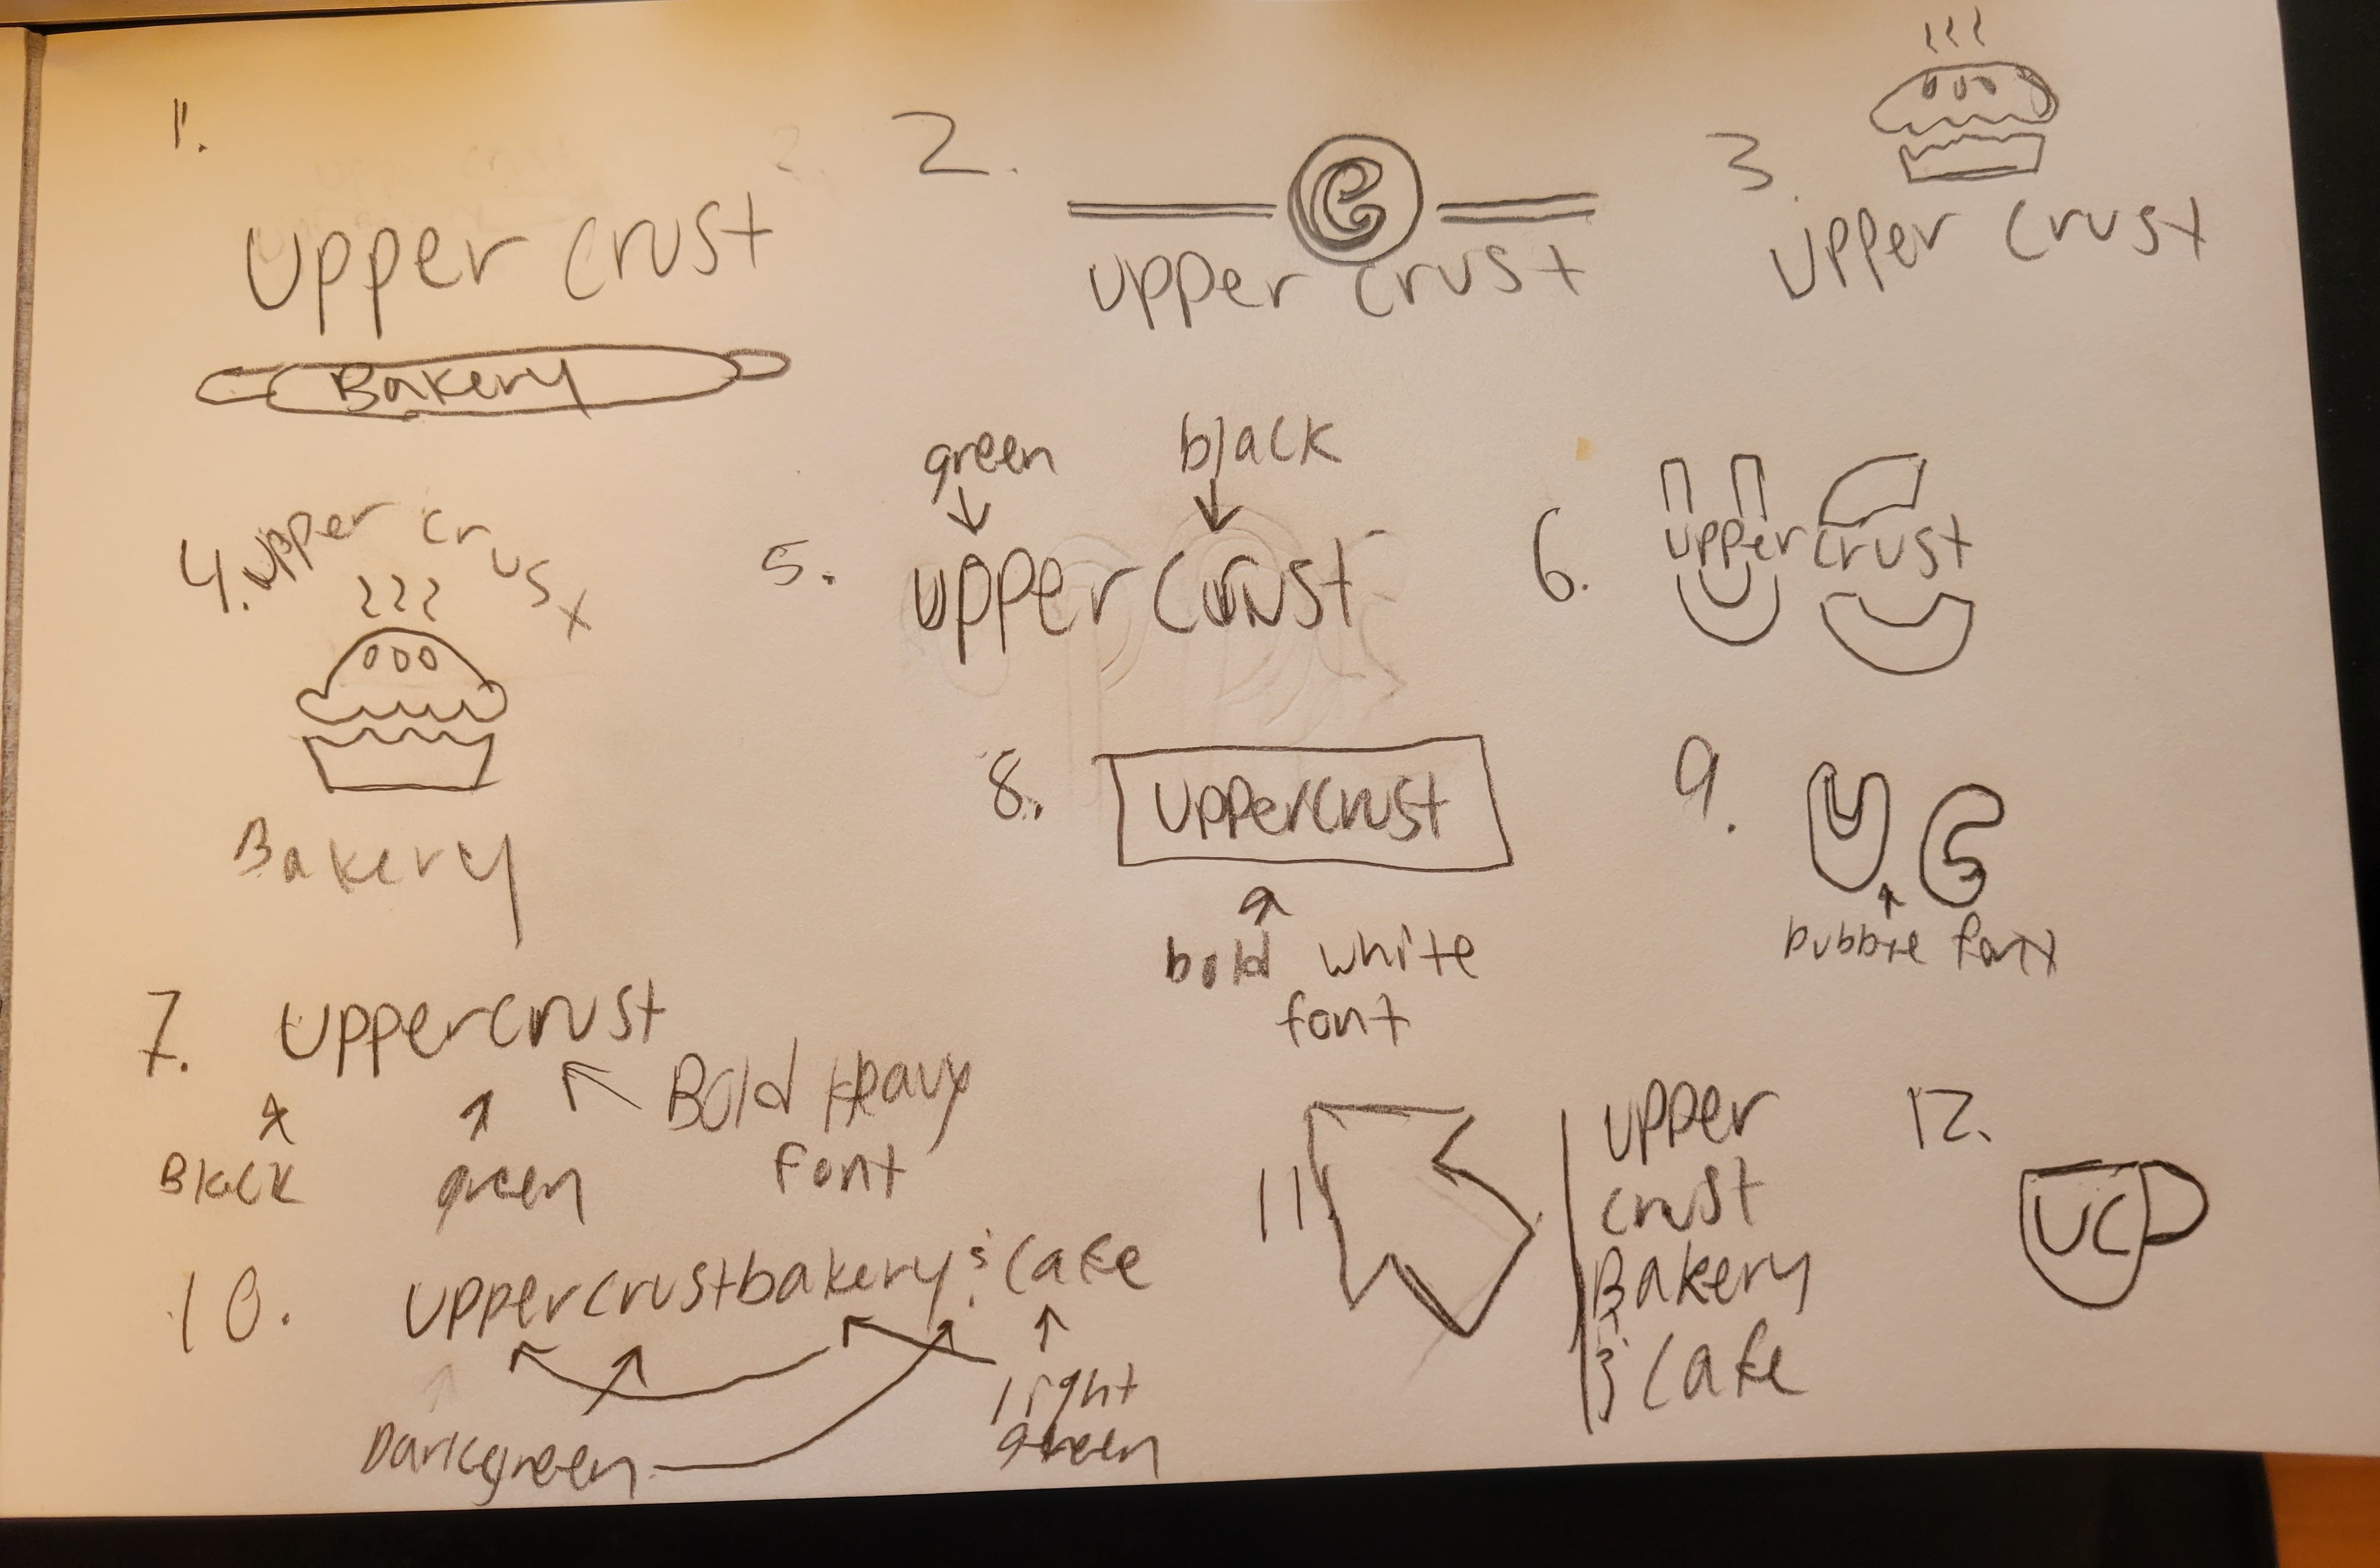 1.
Upper Crust
Bakery
2.
Upper Crust
3.
Upper Crust
4. Upper Crust
Bakery
green black
5. Upper Crust
6. Upper Crust
7. Uppercrust
Black green Bold Heavy
font
8. Uppercrust
bold white
font
9. UC
bubble font
10. Uppercrustbakery & Cafe
Darkgreen
light
green
11.
Upper
Crust
Bakery
& Cafe
12.
UC